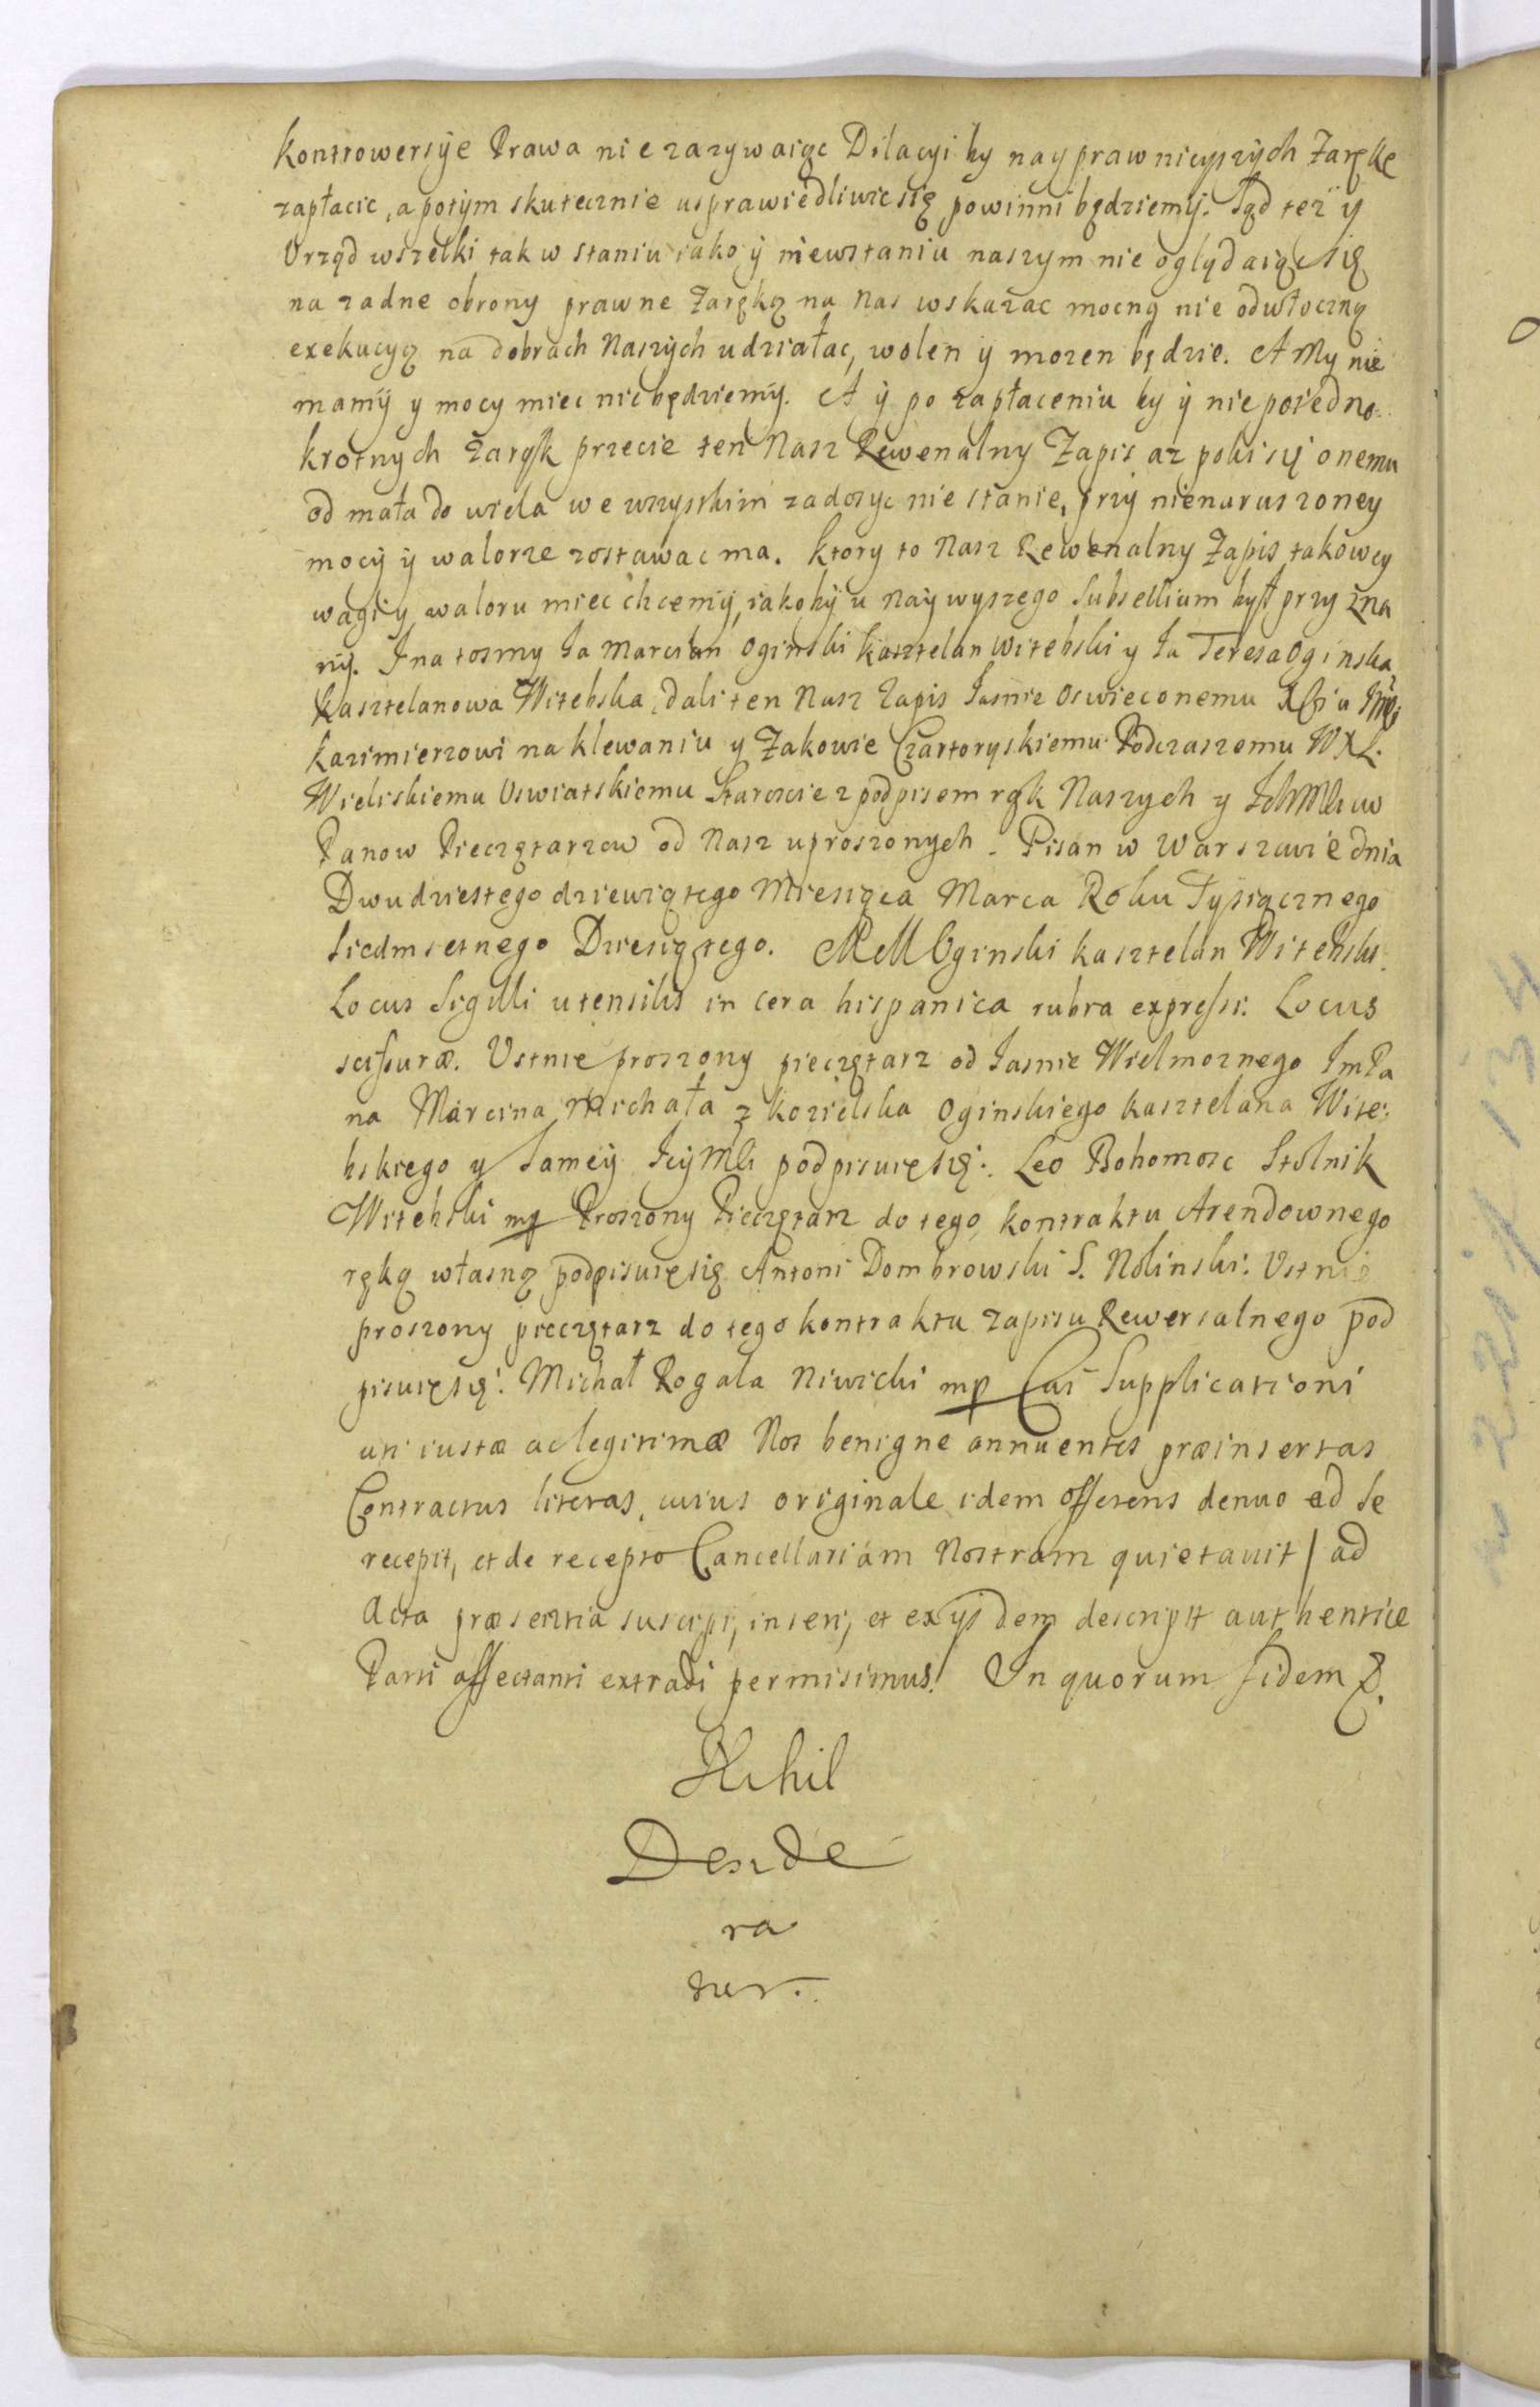 Kontrowersÿe Prawa nie zazywaiąc Dilacyi by nayprawnieyszÿch Zarękę
zapłacic, a potÿm skutecznie usprawiedliwic się powinni będziemÿ. Sąd tez ÿ
Urząd wszelki tak w staniu iako ÿ niewstaniu naszym nie oglądaiąc się
na zadne obrony prawne Zarękę na Nas wskazac mocną nie odwłoczną
exekucyą na dobrach Naszÿch udziałac, wolen ÿ mozen będzie. A My nie
mamÿ y mocy miec nie będziemÿ. A ÿ po zapłaceniu by ÿ nie poiedno
krotnych Zaręk przecie ten Nasz Rewersalny Zapis az poki się onemu
od mała do wiela we wszystkim zadosyc nie stanie, przÿ nienaruszoney
mocÿ ÿ walorze zostawac ma. Ktory to Nasz Rewersalny Zapis takowey
wagi y waloru miec chcemÿ, iakobÿ u Naywyszego Subsellium był przyzna
nÿ. I na tosmy Ia Marcian Oginski Kasztelan Witebski y Ia Teresa Oginska
Kasztelanowa Witebska, dali ten Nasz Zapis Iasnie Oswieconemu
Kazimierzowi na Klewaniu y Zukowie Czartoryskiemu Podczaszemu W X L.
Wieliskiemu Uswiatskiemu Staroscie z podpisem rąk Naszych y
Panow Pieczętarzow od Nasz uproszonych. Pisan w Warszawie dnia
Dwudziestego dziewiątego Miesiąca Marca Roku Tysiącznego
Siedmsetnego Dziesiątego. M M Oginski Kasztelan Witebski.
Locus Sigilli utensilis in cera hispanica rubra expressi. Locus
scissuræ. Ustnie proszony pieczętarz od Iasnie Wielmoznego ImPa
na Marcina Michała z Kozielska Oginskiego Kasztelana Wite:
bskiego y Samey Ieÿ Mści podpisuię się. Leo Bohomosc Stolnik
Witebski mp Proszony Pieczętarz do tego Kontraktu Arendownego
ręką własną podpisuię się Antoni Dombrowski S. Nolinski. Ustnie
proszony pieczętarz do tego Kontraktu Zapisu Rewersalnego pod
pisuię się. Michał Rogala Niwicki mp Cui Supplicationi
uti iustæ ac legitimæ Nos benigne annuentes præinsertas
Contractus literas, cuius originale idem offerens denuo ad Se
recepit, et de recepto Cancellariam Nostram quietavit / ad
Acta præsentia suscipi, inseri, et ex ijsdem descript authentice
Parti affectanti extradi permisimus. In quorum fidem &.
Nihil
Deside
ra
tur.